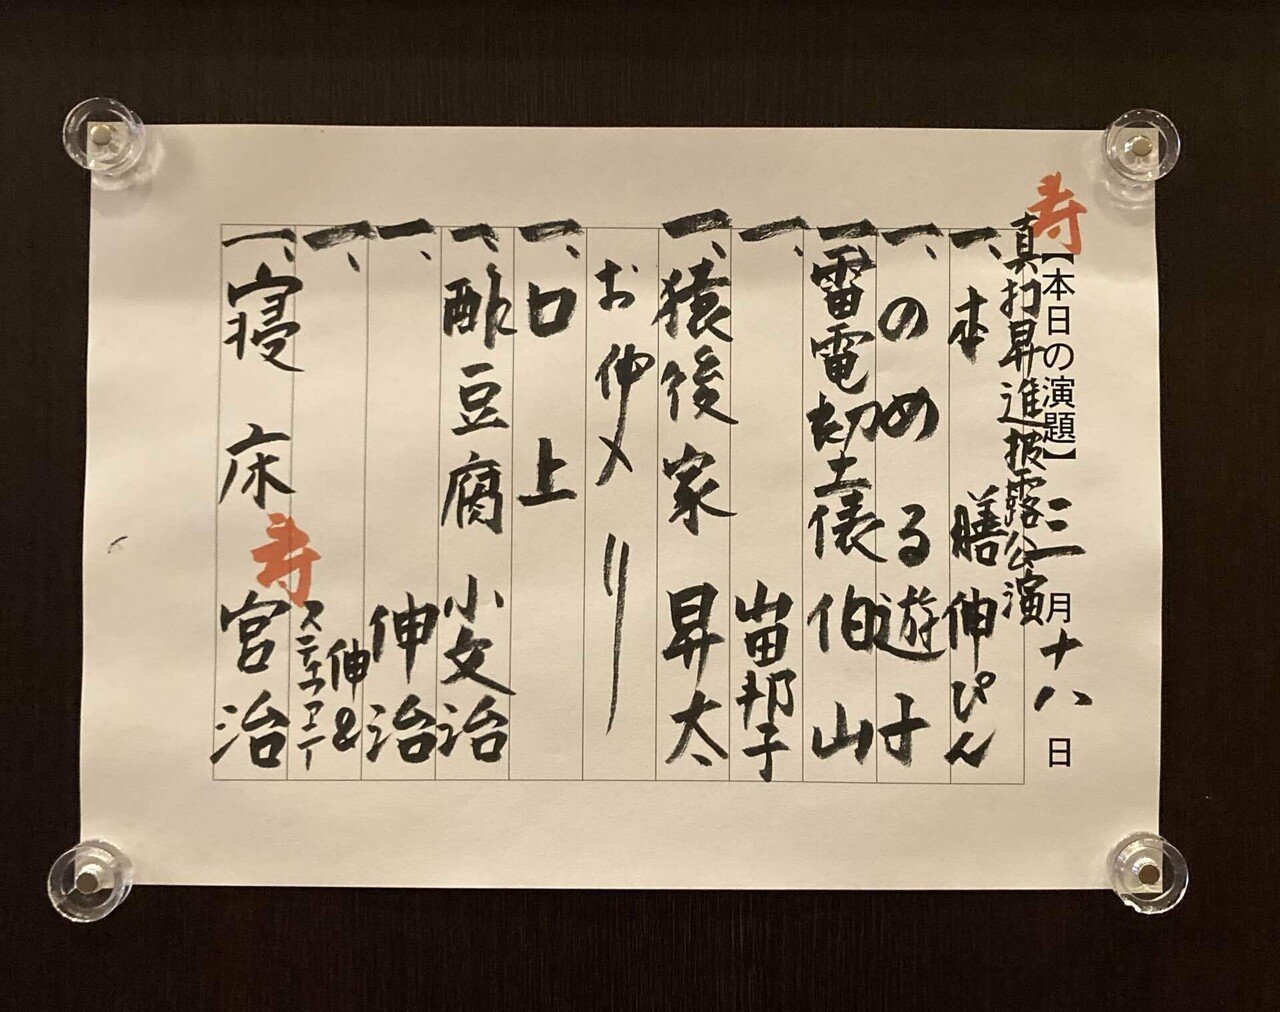 寿
【本日の演題】 三月十八日
真打昇進披露公演
一、本膳 伸ぴん
一、のめる 遊子
一、雷電初土俵 伯山
一、 山田邦子
一、猿後家 昇太
お仲入り
一、口上
一、酢豆腐 小文治
一、 伸治
一、 伸&スティファニー
一、寝床 宮治
寿